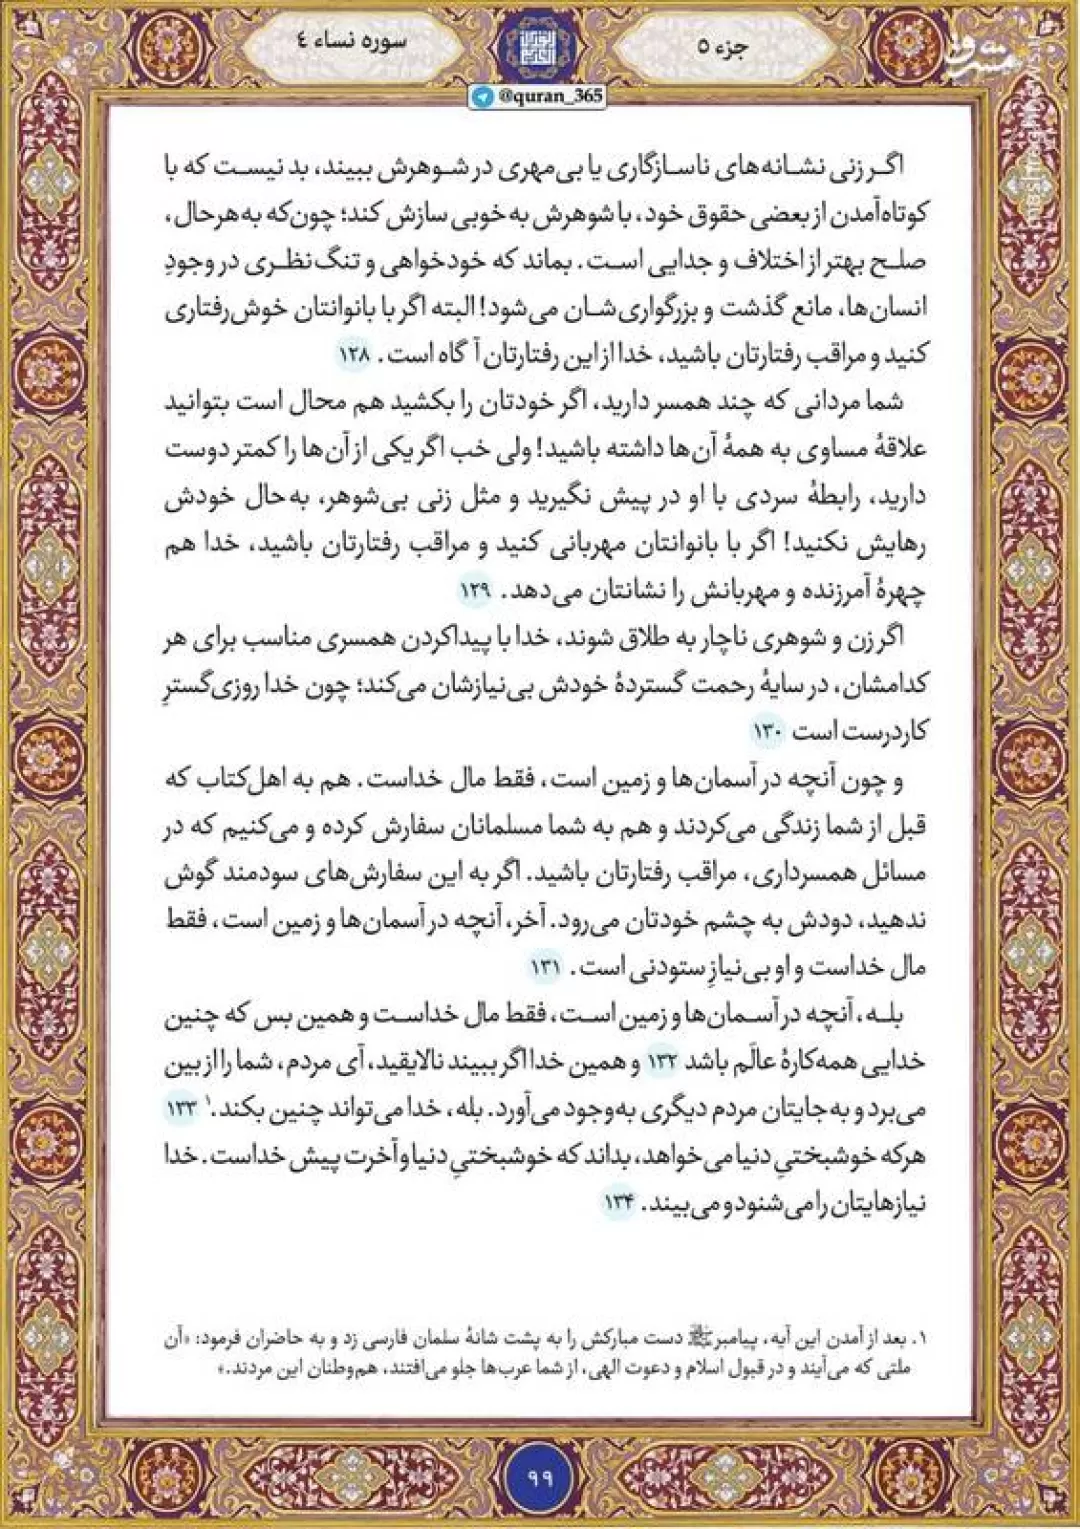 جزء ۵
سوره نساء ۴
مشرق
@quran_365
اگر زنی نشانه‌های ناسازگاری یا بی‌مهری در شوهرش ببیند، بد نیست که با
کوتاه‌آمدن از بعضی حقوق خود، با شوهرش به خوبی سازش کند؛ چون‌که به‌هرحال،
صلح بهتر از اختلاف و جدایی است. بماند که خودخواهی و تنگ‌نظری در وجودِ
انسان‌ها، مانع گذشت و بزرگواری‌شان می‌شود! البته اگر با بانوانتان خوش‌رفتاری
کنید و مراقب رفتارتان باشید، خدا از این رفتارتان آگاه است. ۱۲۸
شما مردانی که چند همسر دارید، اگر خودتان را بکشید هم محال است بتوانید
علاقهٔ مساوی به همهٔ آن‌ها داشته باشید! ولی خب اگر یکی از آن‌ها را کمتر دوست
دارید، رابطهٔ سردی با او در پیش نگیرید و مثل زنی بی‌شوهر، به‌حال خودش
رهایش نکنید! اگر با بانوانتان مهربانی کنید و مراقب رفتارتان باشید، خدا هم
چهرهٔ آمرزنده و مهربانش را نشانتان می‌دهد. ۱۲۹
اگر زن و شوهری ناچار به طلاق شوند، خدا با پیداکردن همسری مناسب برای هر
کدامشان، در سایهٔ رحمت گستردهٔ خودش بی‌نیازشان می‌کند؛ چون خدا روزی‌گسترِ
کاردرست است ۱۳۰
و چون آنچه در آسمان‌ها و زمین است، فقط مال خداست. هم به اهل‌کتاب که
قبل از شما زندگی می‌کردند و هم به شما مسلمانان سفارش کرده و می‌کنیم که در
مسائل همسرداری، مراقب رفتارتان باشید. اگر به این سفارش‌های سودمند گوش
ندهید، دودش به چشم خودتان می‌رود. آخر، آنچه در آسمان‌ها و زمین است، فقط
مال خداست و او بی‌نیازِ ستودنی است. ۱۳۱
بله، آنچه در آسمان‌ها و زمین است، فقط مال خداست و همین بس که چنین
خدایی همه‌کارهٔ عالَم باشد ۱۳۲ و همین خدا اگر ببیند نالایقید، آی مردم، شما را از بین
می‌برد و به جایتان مردم دیگری به‌وجود می‌آورد. بله، خدا می‌تواند چنین بکند.۱ ۱۳۳
هرکه خوشبختیِ دنیا می‌خواهد، بداند که خوشبختیِ دنیا و آخرت پیش خداست. خدا
نیازهایتان را می‌شنود و می‌بیند. ۱۳۴
۱. بعد از آمدن این آیه، پیامبر ﷺ دست مبارکش را به پشت شانهٔ سلمان فارسی زد و به حاضران فرمود: «آن
ملتی که می‌آیند و در قبول اسلام و دعوت الهی، از شما عرب‌ها جلو می‌افتند، هم‌وطنان این مردند.»
۹۹